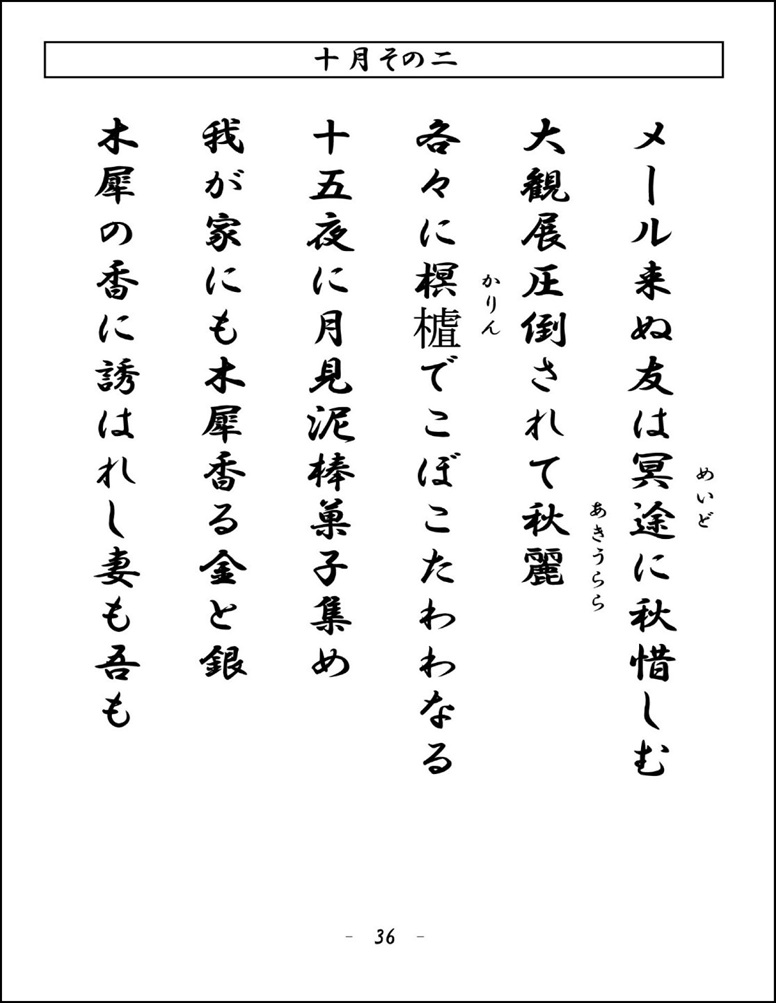 十月その二
メール来ぬ友は冥途に秋惜しむ
めいど
大観展圧倒されて秋麗
あきうらら
各々に榠樝でこぼこたわわなる
かりん
十五夜に月見泥棒菓子集め
我が家にも木犀香る金と銀
木犀の香に誘はれし妻も吾も
- 36 -